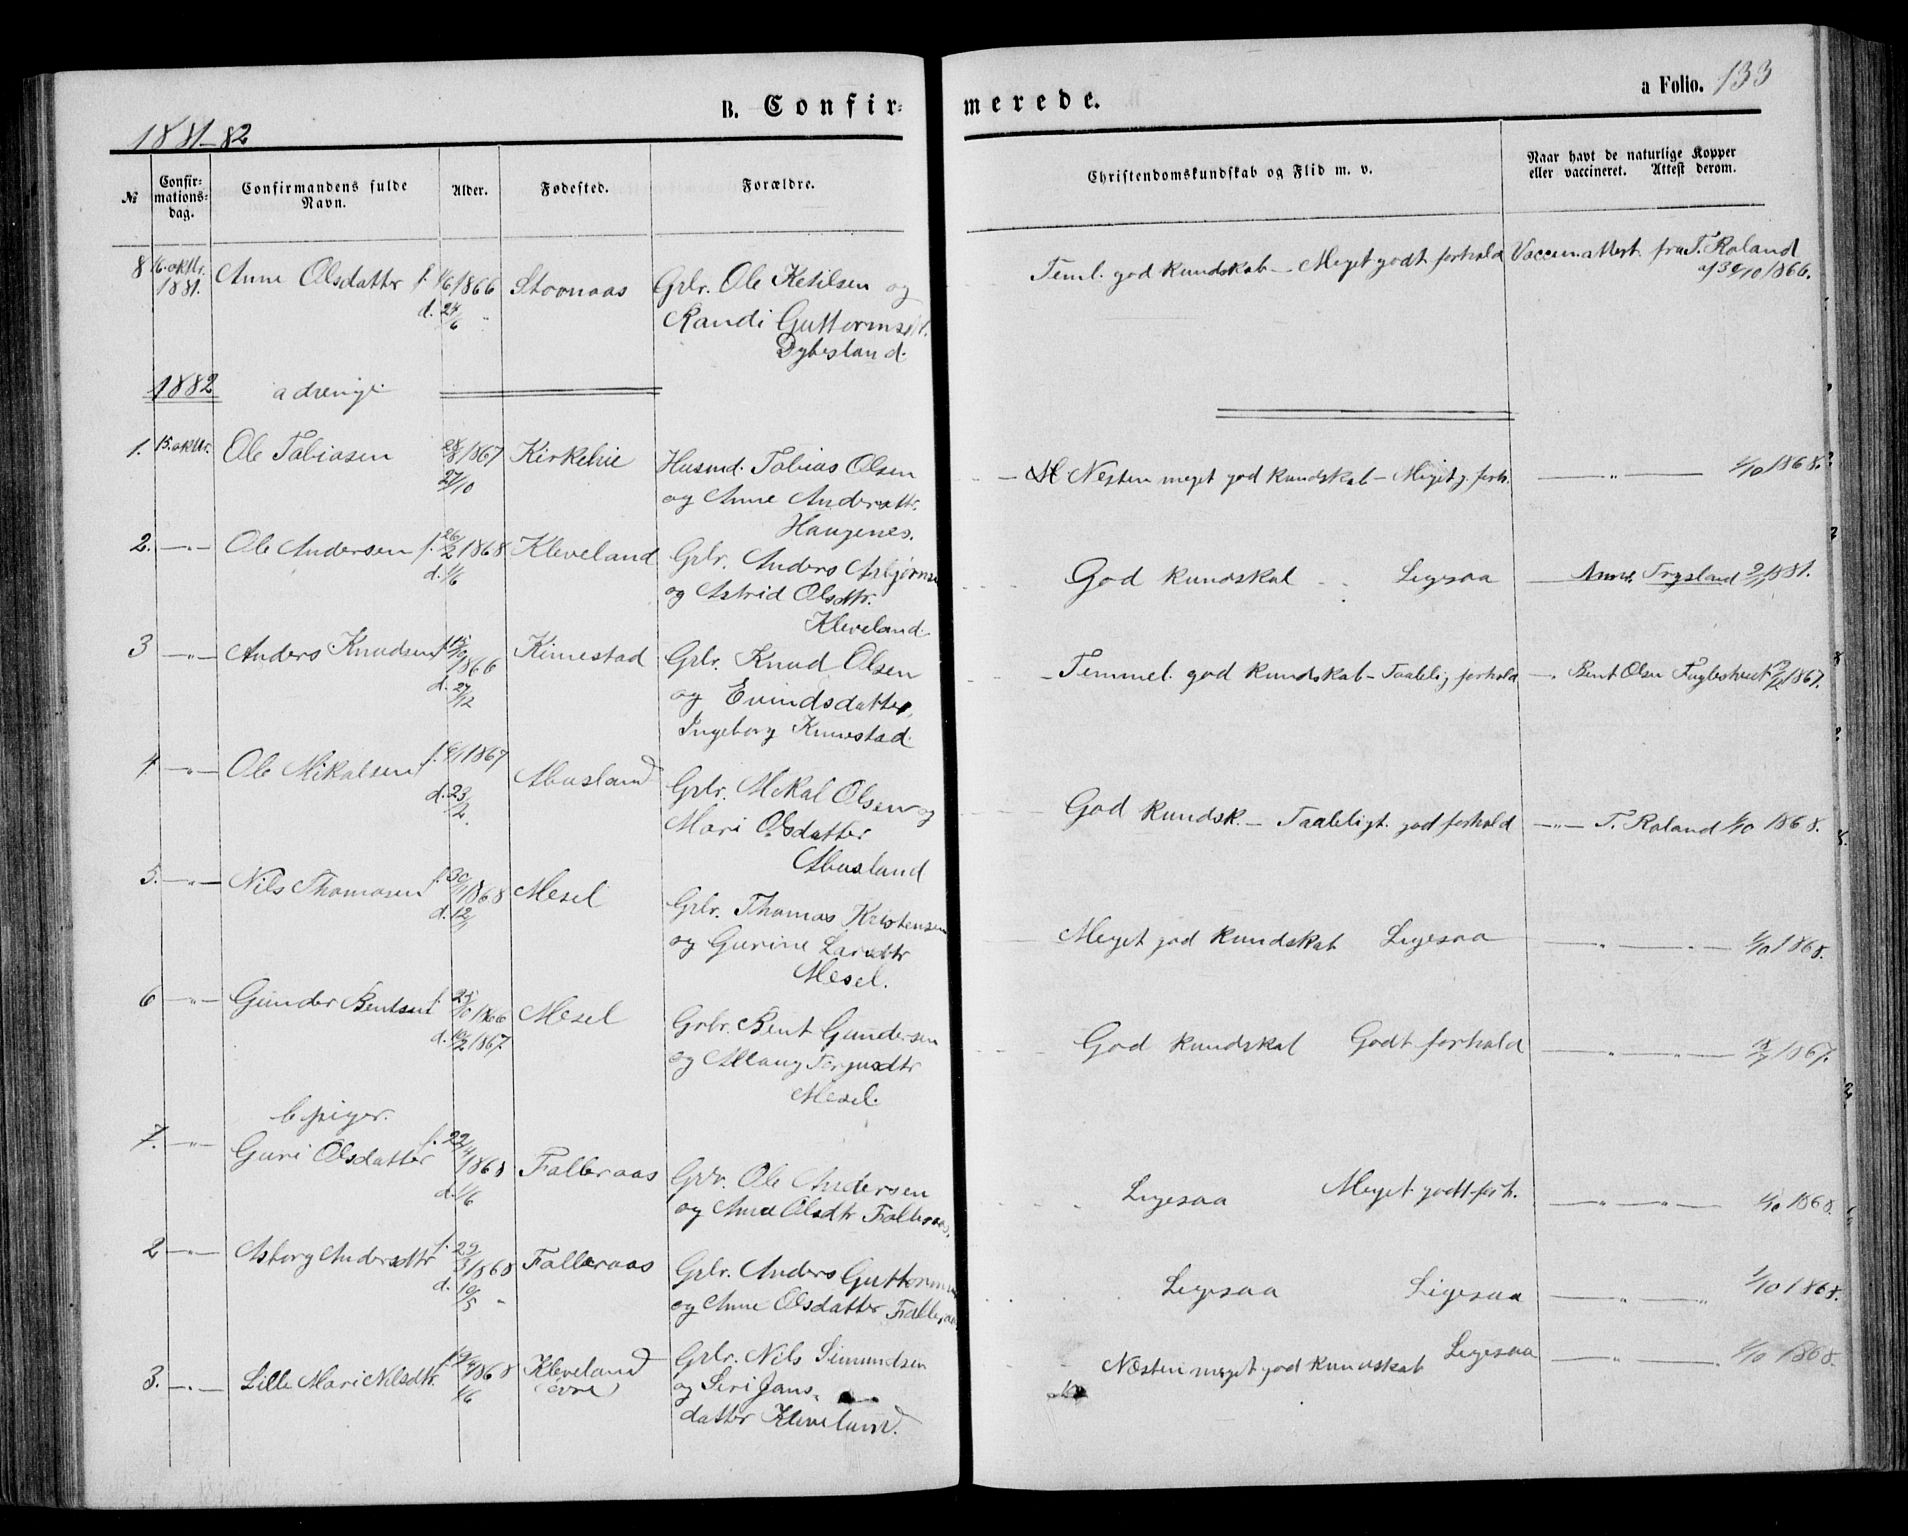 B. Confir-
merede.
a Folio. 133
1881-82
№
Confir-
mations-
dag.
Confirmandens fulde
Navn.
Alder.
Fødested.
Forældre.
Christendomskundskab og Flid m. v.
Naar havt de naturlige Kopper
eller vaccineret. Attest derom.
8 16. oktbr. 1881. Anne Olsdatter f. 1/6 1866 d. 24/6 " Stovnaas Grbr. Ole Ketilsen og
Randi Guttormsd.
Dybesland.
Teml. god kundskab - Meget godt forhold Vaccinattest fra T. Roland
af 30/10 1866.
1882 a drenge
1. 15. oktbr. Ole Tobiasen 28/8 1867 27/10 Kirkelie Husmd. Tobias Olsen
og Anne Andersdtr.
Haugenes.
Nesten meget god kundskab - Meget g. forh. — " — 1/10 1868.
2. — " — Ole Andersen f. 26/2 1868 d. 1/6 Kleveland Grbr. Anders
og Astrid Olsdtr.
Kleveland.
God kundskab Ligesaa Trysland 1881.
3 — " — Anders Knudsen 1866 d. 27/12 Kimestad Grbr. Knud Olsen
og Evindsdatter,
Ingeborg Kimestad.
Temmel. god kundskab - Taalelig forhold — Bent Olsen 1867.
4 — " — Ole Mikalsen 1867 d. 23/2. Abusland Grbr. Mikal Olsen og
Mari Olsdatter
Abusland
God kundsk. - Taaleligt godt forhold — " — T. Roland 1/10 1868.
5. — " — Nils Thomasen f. 30/1 1868 d. 12/ Mesel Grbr. Thomas Kristensen
og Gurine Larsdtr
Mesel.
Meget god kundskab Ligesaa — " — " — 1/10 1868.
6 — " — Gunder Bentsen f. 25/10 1866 d. 10/2 1867. Mesel Grbr. Bent Gundersen
og Tergusdtr
Mesel.
God kundskab Godt forhold — " — " — 1867.
b piger.
1. — " — Guri Olsdatter f. 22/4 1868 d. 1/6 Falleraas Grbr. Ole Andersen
og Anne Olsdtr Falleraas,
Ligesaa Meget godt forh. — " — " — 1/10 1868.
2 — " — Asborg Andersdtr f. 29/3 1868 d. 10/5 " Falleraas Grbr. Anders Guttormsen
og Anne Olsdatter Falleraas.
Ligesaa Ligesaa — " — " 1/10 1868.
3. — " — Lille Mari Nilsdtr. 1868 1/6 Kleveland
(øvre)
Grbr. Nils Simundsen
og Siri Jans-
datter Kleveland.
Næsten meget god kundskab Ligesaa — " — . 1/10 1868.